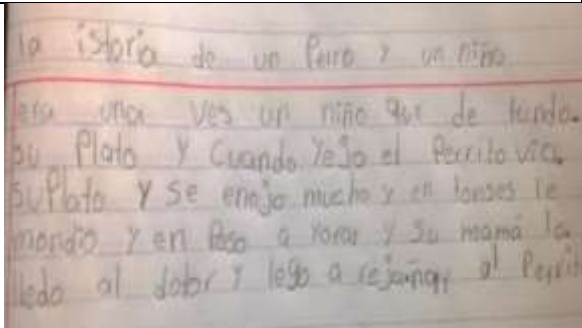 la istoria de un Perro y un niño
era una ves un niño que de
su Plato y Cuando yejo el Perrito via
su Plato y se enojo mucho y en tonses le
mordio y en Paso a yorar y su mamá lo
al dotor y lego a rejañar al Perrito